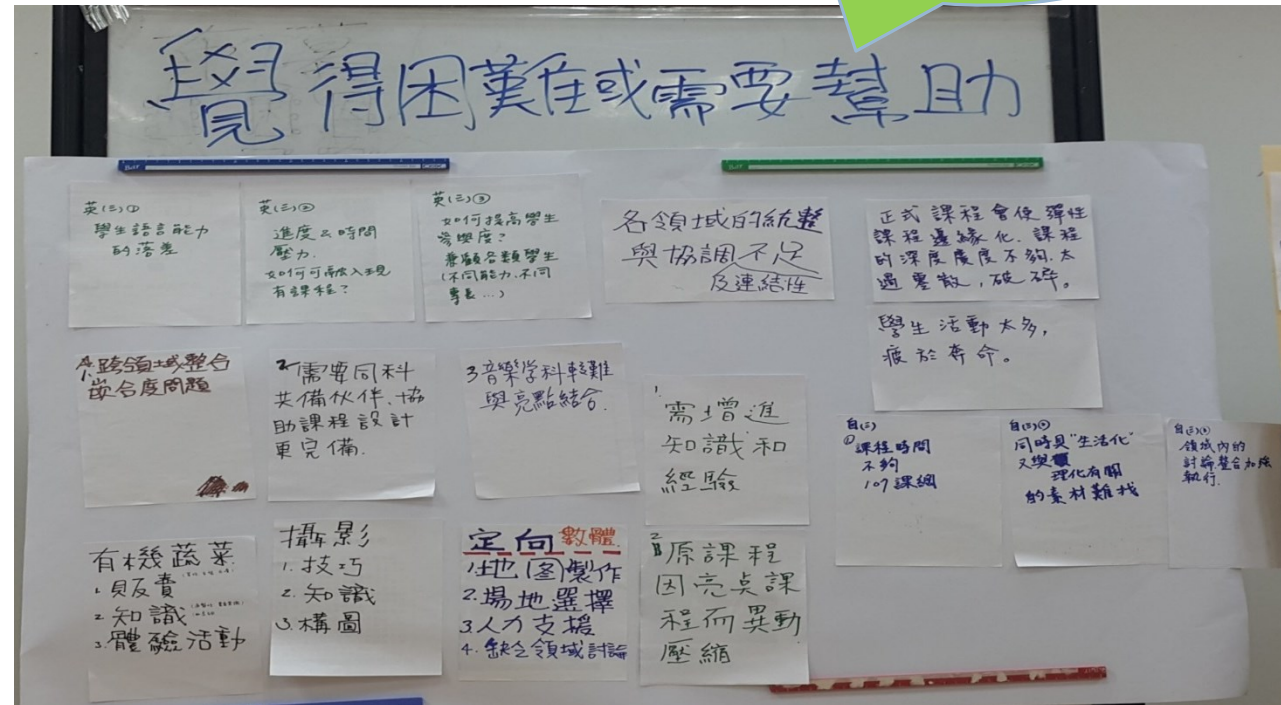 覺得困難或需要幫助
英(三)①
學生語言能力
的落差
英(三)②
進度&時間
壓力.
如何可融入現
有課程?
英(三)③
如何提高學生
參與度?
兼顧各類學生
(不同能力.不同
專長...)
各領域的統整
與協調不足
及連結性
正式課程會使彈性
課程邊緣化.課程
的深度廣度不夠.太
過零散,破碎。
學生活動太多,
疲於奔命。
跨領域整合
嵌合度問題
2.需要同科
共備伙伴.協
助課程設計
更完備.
3音樂学科較難
與亮點結合.
1.
需增進
知識和
經驗
自(三)
①課程時間
不夠
107課綱
自(三)②
同時具"生活化"
又與
理化有關
的素材難找
自(三)③
領域內的
討論整合加強
執行.
有機蔬菜
1.販賣
2.知識
3.體驗活動
攝影
1.技巧
2.知識
3.構圖
定向 數體
1.地圖製作
2.場地選擇
3.人力支援
4.缺乏領域討論
2
原課程
因亮点課
程而異動
壓縮